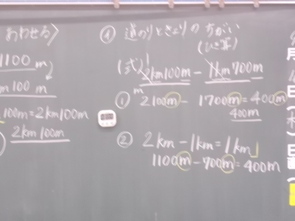 あわせる〉
1100m
m 100 m
100m=2km100m
2km100m
④ 道のりときょりのちがい
(ひき算)
(式) 2km100m - 1km700m
① 2100m - 1700m=400m
400m
② 2km-1km=1km
1100m-700m=400m
月
日